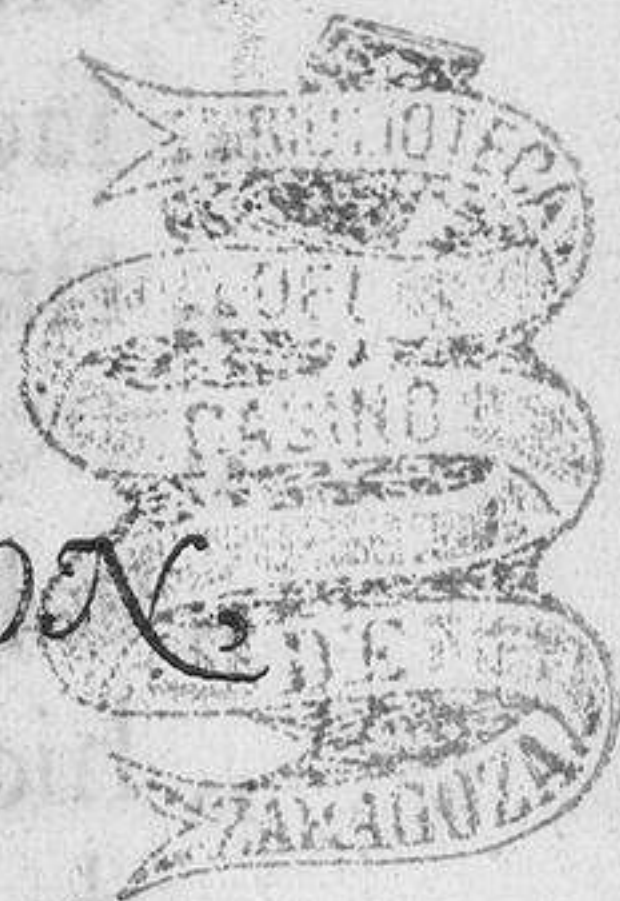 BIBLIOTECA
DEL
CASINO
N,
DE
ZARAGOZA